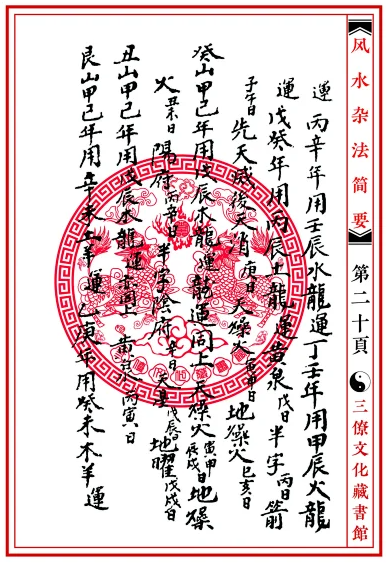 风水杂法简要 第二十頁 三僚文化藏書館
運 丙辛年用壬辰水龍運丁壬年用甲辰火龍
運 戊癸年用丙辰土龍運 黄泉戊日 半字丙日 箭
子午日 先天 後天消庚日 天燥火 地燥火巳亥日
癸山甲己年用戊辰木龍運 龍運同上 天燥火寅甲 日地燥
火丑未日 陽府丙辛日 半字陰府辛日 戊辰日地曜戊戌日
丑山甲己年用戊辰木龍運 同上 黄泉丙寅日
艮山甲己年用辛未土羊運 乙庚年用癸未木羊運